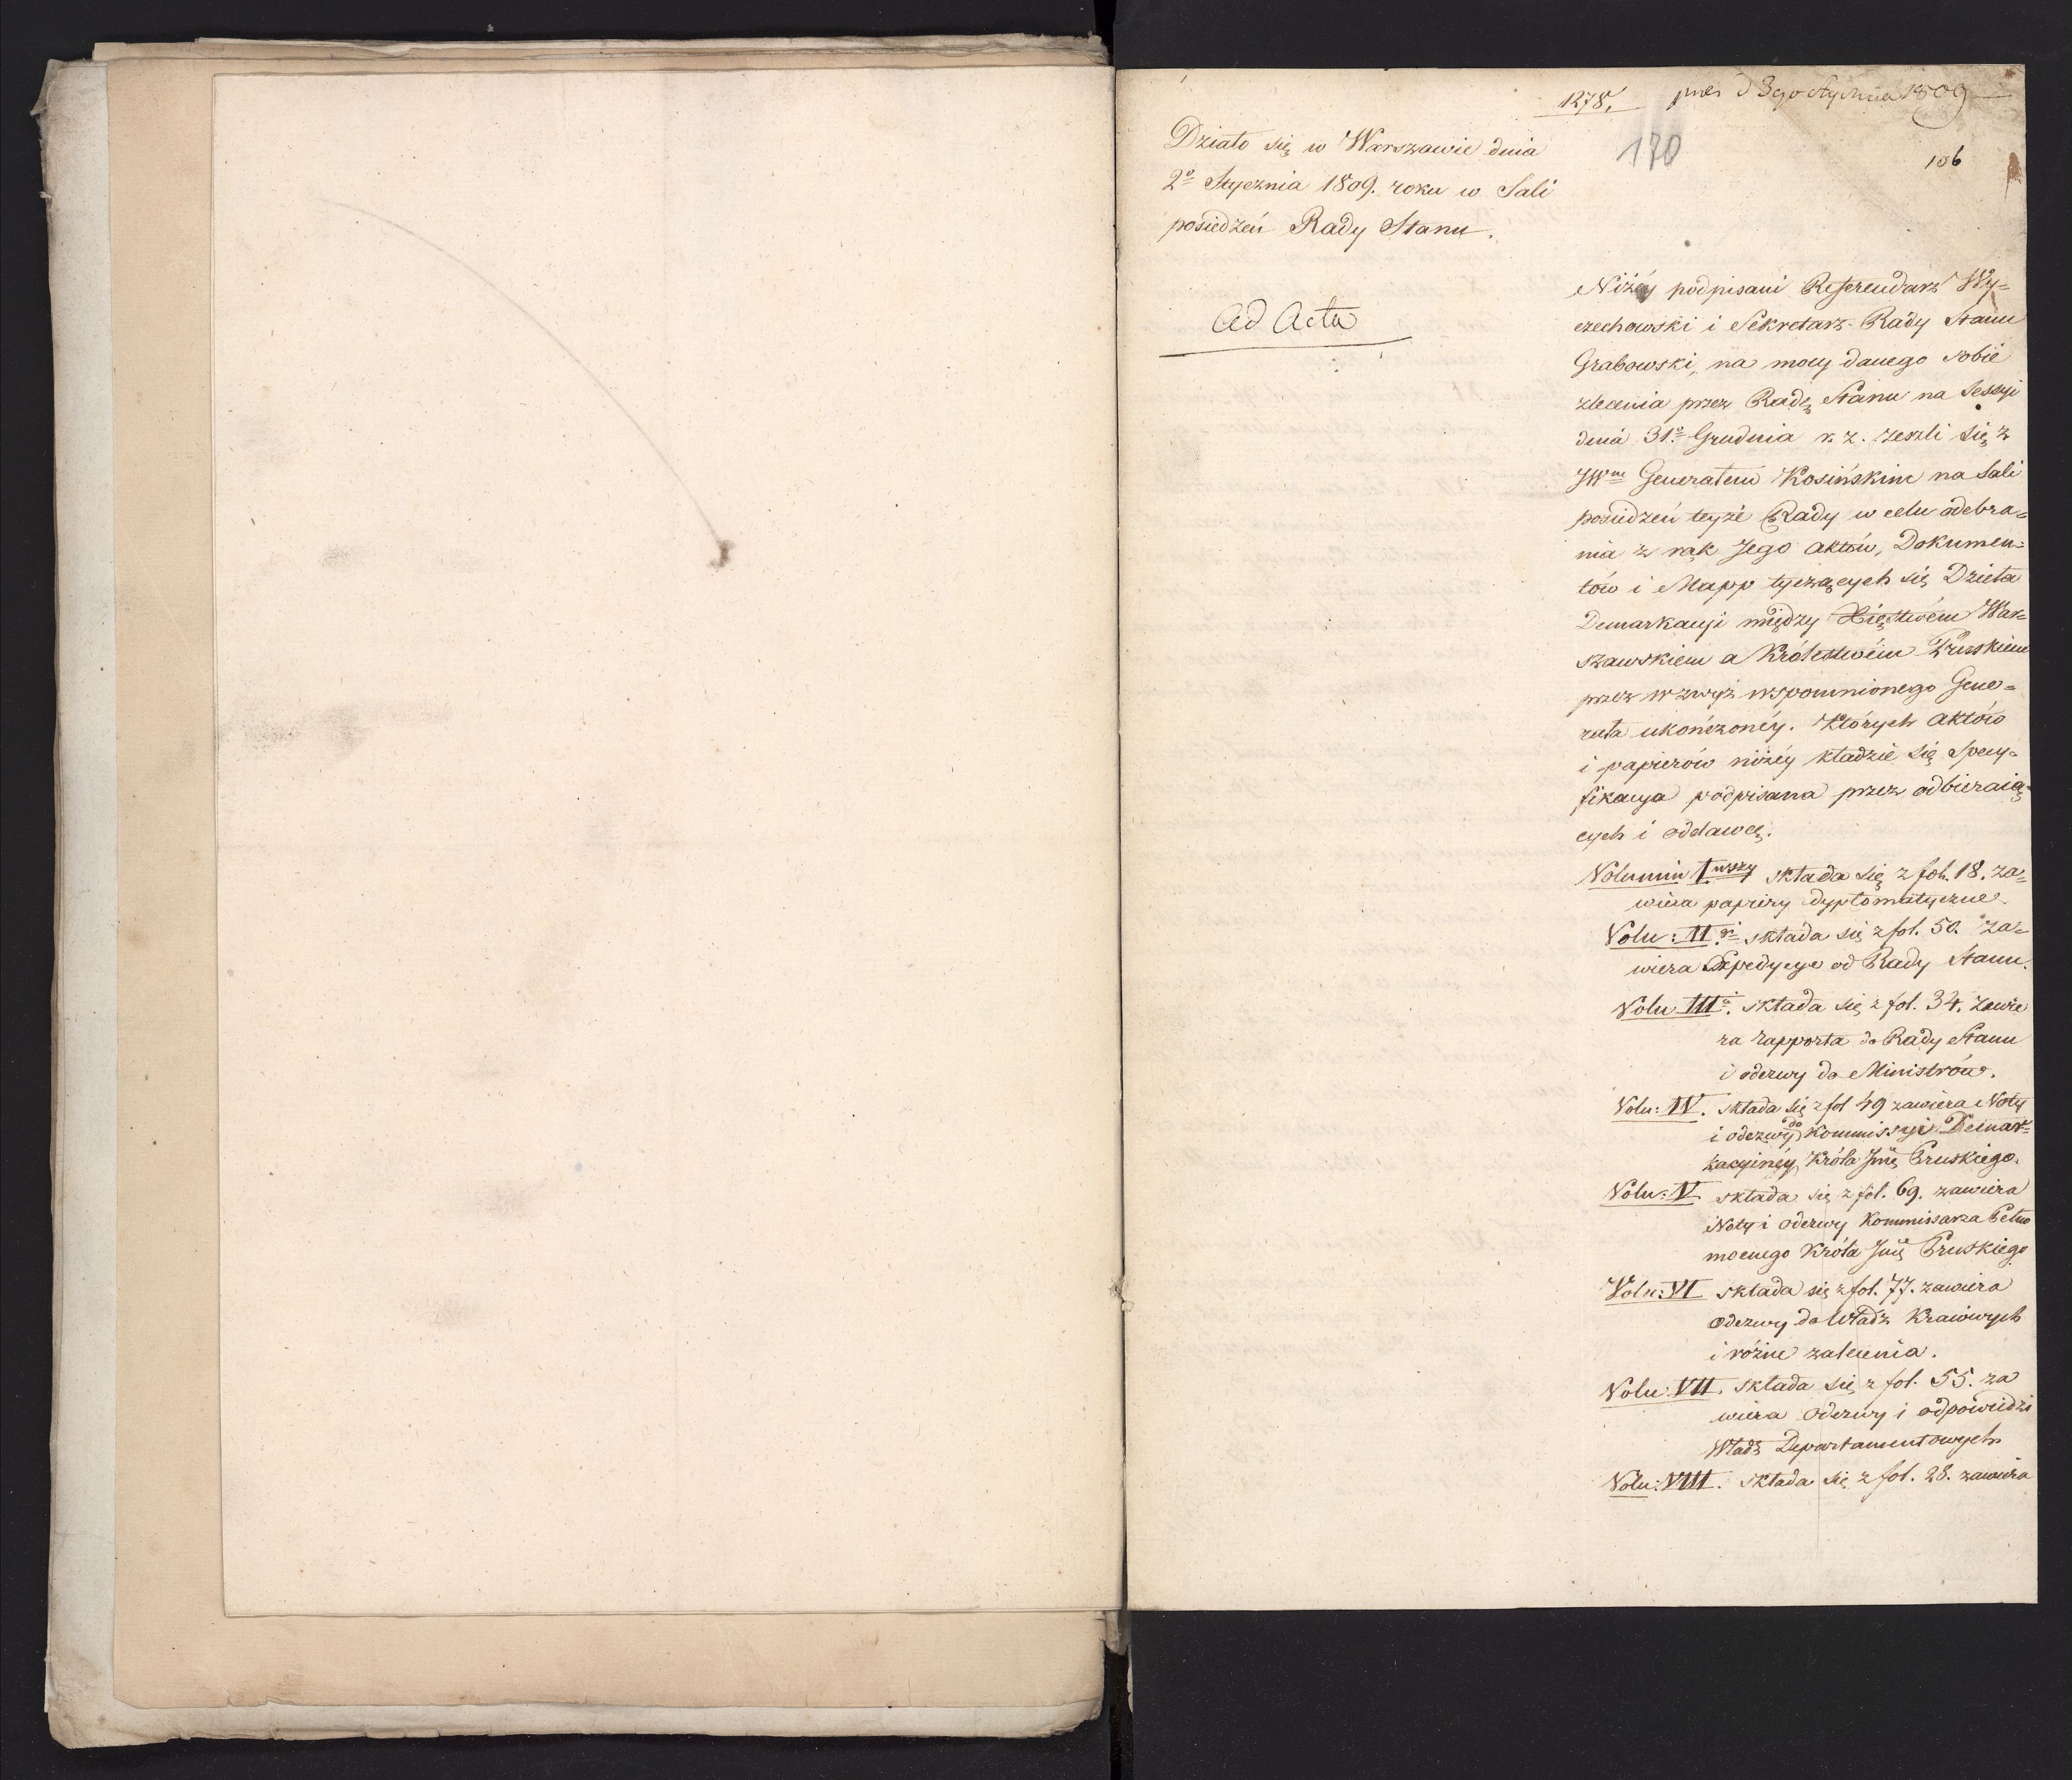 1278. pres d 3go Stycznia 1809
170
106
Działo się w Warszawie dnia
2o Stycznia 1809. roku w Sali
posiedzeń Rady Stanu.
Ad Acta
Niżéy podpisani Referendarz Wy=
czechowski i Sekretarz Rady Stanu
Grabowski, na mocy danego sobie
zlecenia przez Radę Stanu na Sessyi
dnia 31o Grudnia r. z. zeszli się z
JWm Generałem Kosińskim na Sali
posiedzeń teyże Rady w celu odebra=
nia z rąk Jego Aktów, Dokumen=
tów i Mapp tyczących się Dzieła
Demarkacyi między Xięstwem War=
szawskiem a Królestwem Pruskiem
przez wzwyż wspomnionego Gene=
rała ukończonéy. Których Aktów
i papierów niżéy kładzie się Specy=
fikacya podpisana przez odbieraią=
cych i oddawcę.
Volumin Iwszy składa się z fol. 18. za=
wiera papiery dyplomatyczne
Volu: II. składa się z fol. 50. za=
wiera Expedycye od Rady Stanu.
Volu III. składa się z fol. 34. zawie
ra rapporta do Rady Stanu
i odezwy do Ministrów.
Volu: IV. składa się z fol 49 zawiera Noty
i odezwy do Kommissyi Demar=
kacyinéy Króla Jmę Pruskiego.
Volu: V. składa się z fol. 69. zawiera
Noty i odezwy Kommissarza Pełno
mocnego Króla Jmę Pruskiego
Volu: VI składa się z fol. 77. zawiera
Odezwy do Władz Kraiowych
i różne zalecenia.
Volu: VII. składa się z fol. 55. za
wiera Odezwy i odpowiedzi
Władz Departamentowych
Volu: VIII. składa się z fol. 28. zawiera